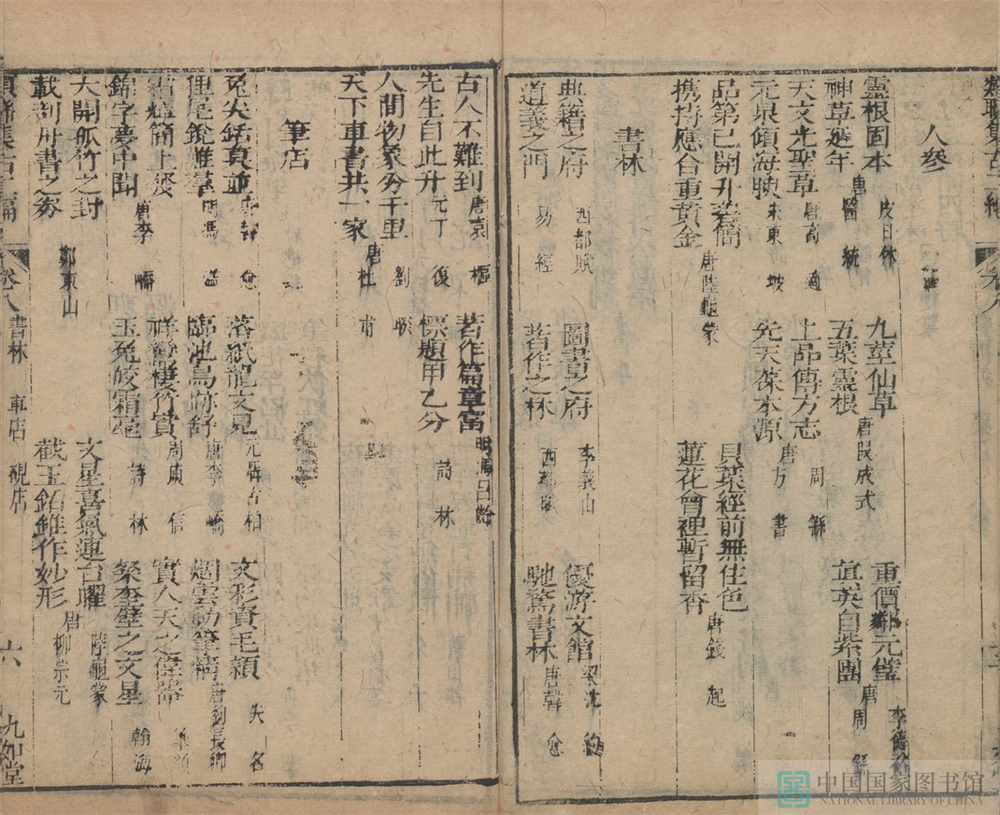 人參
靈根固本 皮日休 九莖仙草 唐段成式 重價鄰元璧 李德裕
神草延年 唐醫統 五葉靈根 周繇 直英自紫團 唐周繇
天文光聖草 唐高適 上品傳方志
元泉傾海腴 宋東坡 先天葆本源 唐方書
品第已開升卷簡 貝葉經前無住色
携持應合重黃金 唐陸龜蒙 蓮花曾裡暫留香 唐錢起
書林
典籍之府 西都賦 圖書之府 李義山 優游文館 梁沈約
道義之門 易經 著作之林 西都賦 馳騖書林 唐韓愈
古人不難到 唐袁樞 著作篇章富 明馮日
先生自此升 元丁復 標題甲乙分 詩林
人間物象分千里 劉
天下車書共一家 唐杜甫
筆店
兔尖銛莫並 韓愈 落紙龍文見 元 古柏 文彩資毛穎 失名
狸尾銳難 明馮 臨池鳥跡舒 唐李嶠 烟雲動筆精 唐劉長卿
簡上發 祥鸞棲竹實 周庾信 實人天之偉器
錦字夢中開 唐李嶠 玉兔皎霜毫 詩林 桒奎壁之文星 翰海
大開孤竹之封 文星喜氣連台曜 陸龜蒙
載剖丹書之 鄭東山 截玉銛錐作妙形 唐柳宗元
卷八 書林 車店 硯店 六 九如堂
中国国家图书馆
NATIONAL LIBRARY OF CHINA